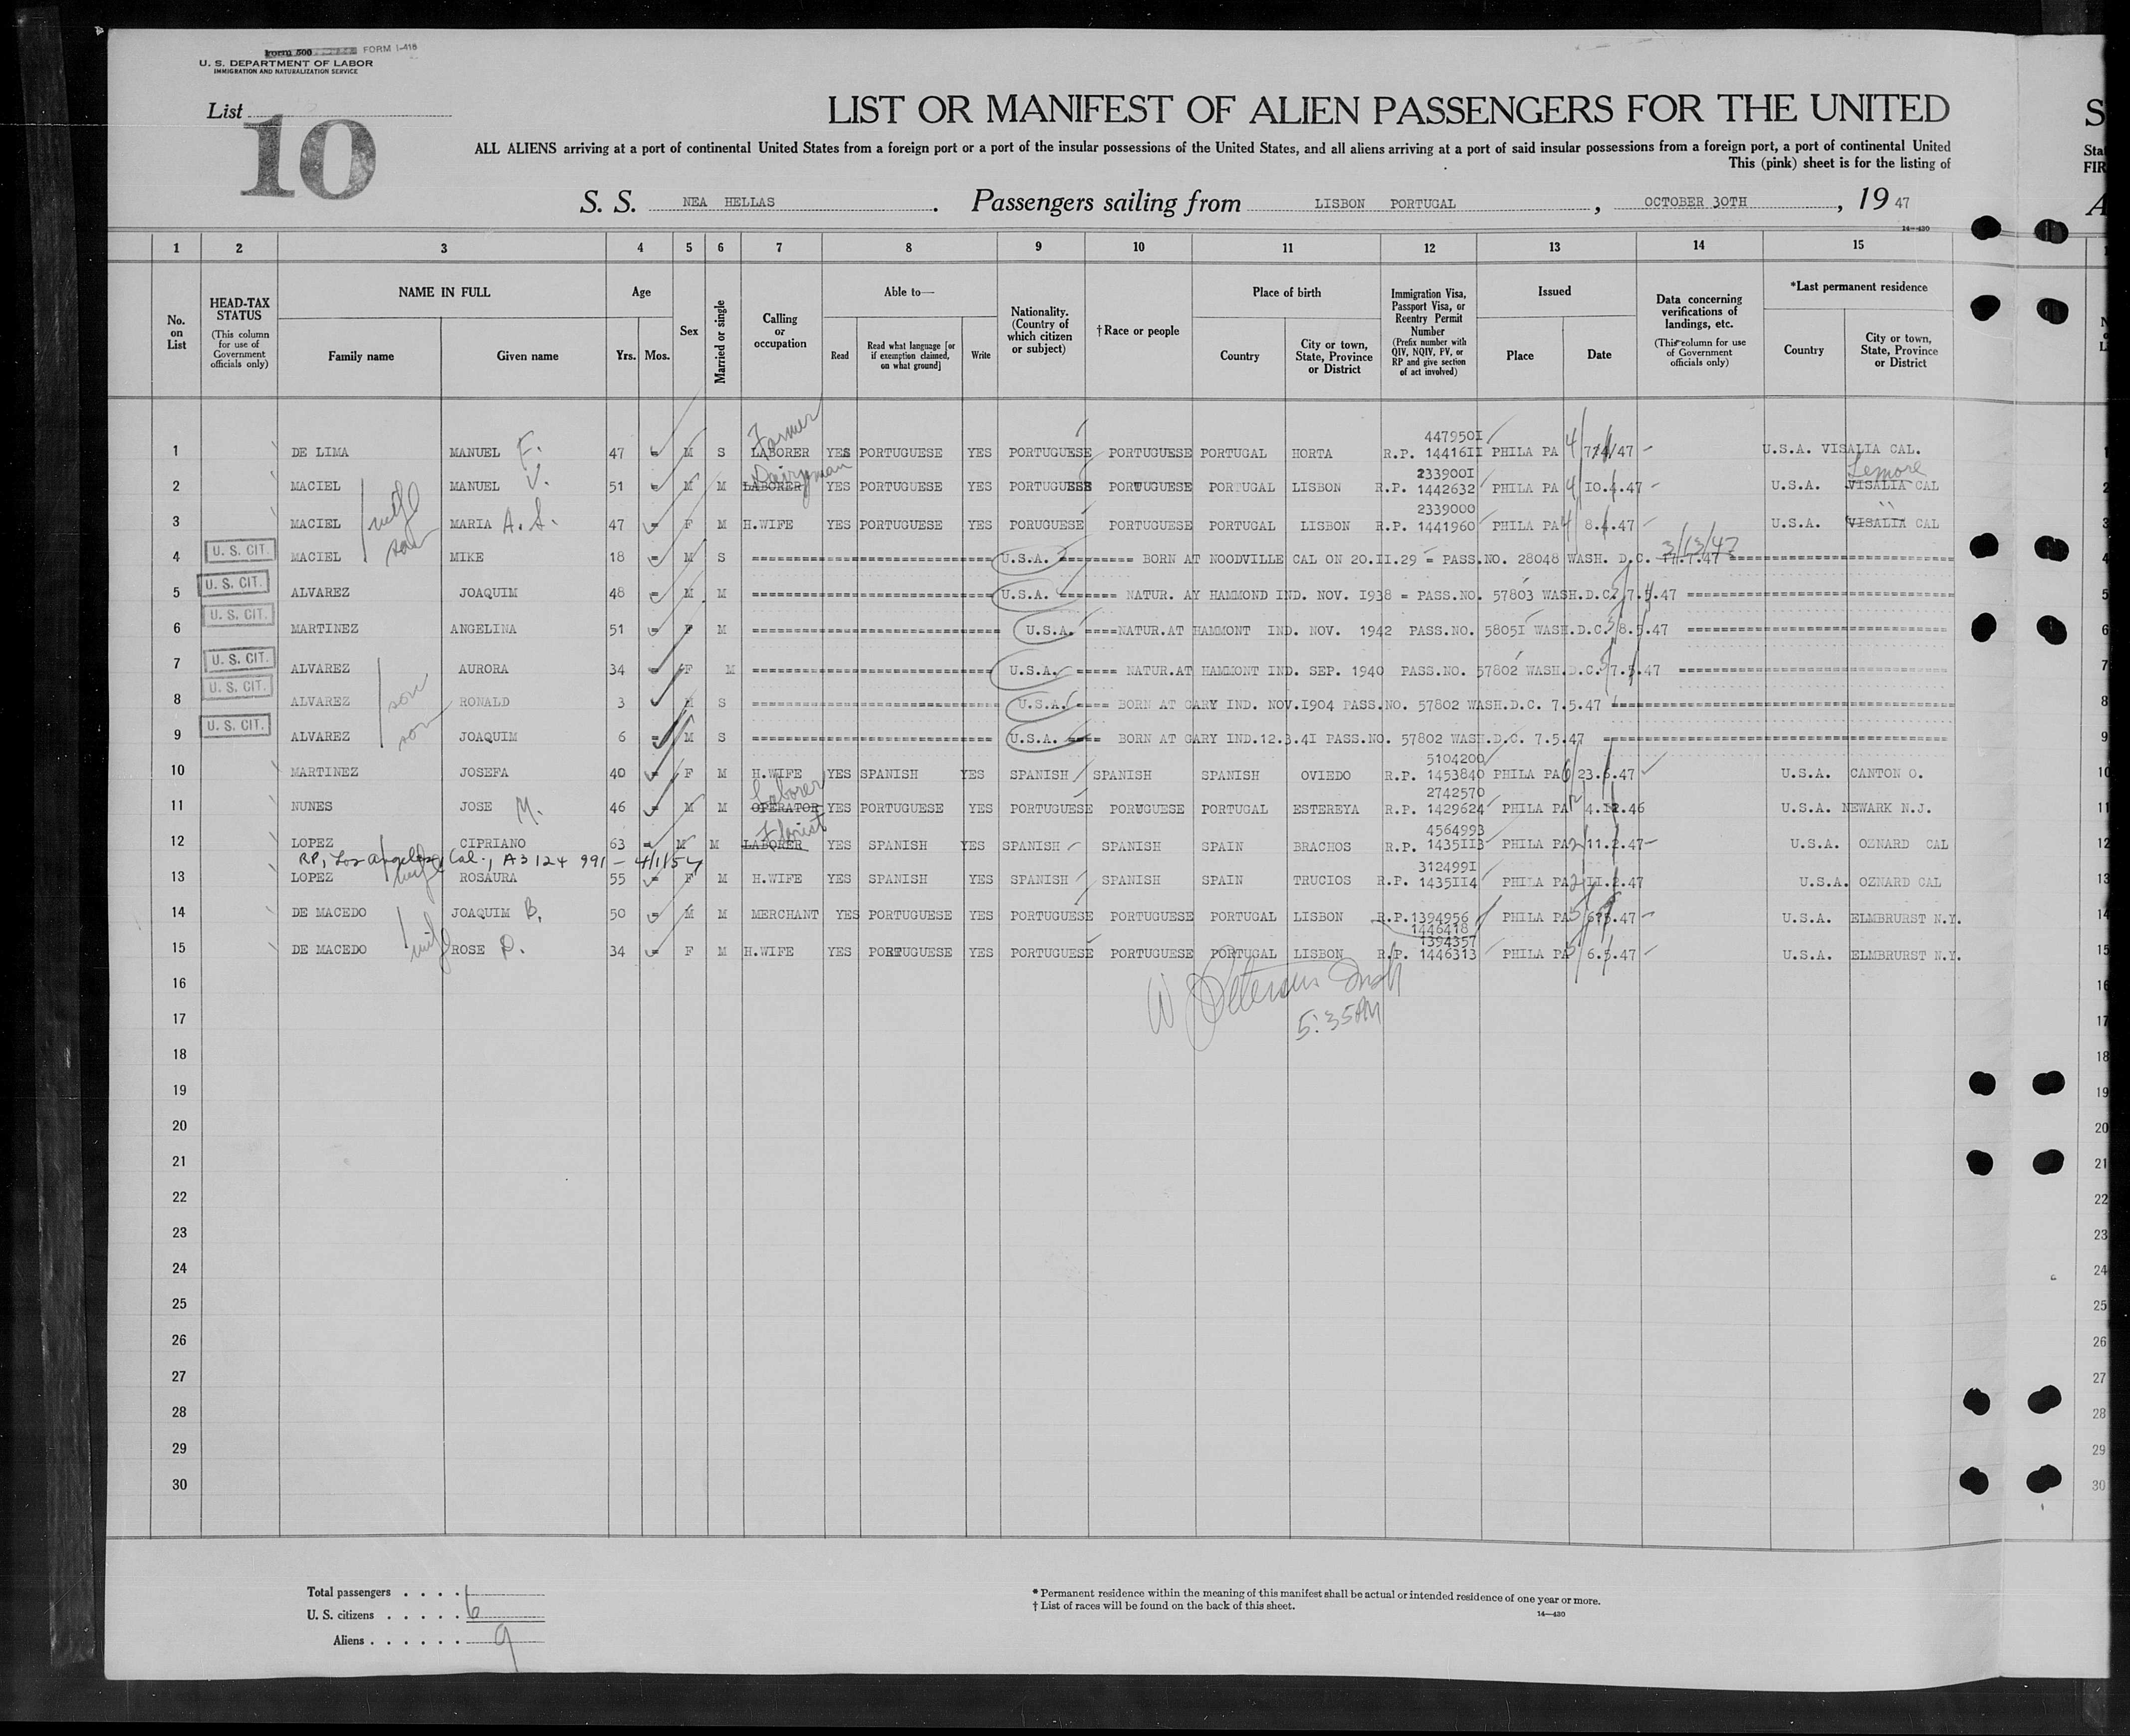 Form 500 FORM I-415
U. S. DEPARTMENT OF LABOR
IMMIGRATION AND NATURALIZATION SERVICE
List
10
LIST OR MANIFEST OF ALIEN PASSENGERS FOR THE UNITED
ALL ALIENS arriving at a port of continental United States from a foreign port or a port of the insular possessions of the United States, and all aliens arriving at a port of said insular possessions from a foreign port, a port of continental United
This (pink) sheet is for the listing of
S. S. NEA HELLAS. Passengers sailing from LISBON PORTUGAL, OCTOBER 30TH, 19 47
14—430
1 2 3 4 5 6 7 8 9 10 11 12 13 14 15
No. on List
HEAD-TAX STATUS (This column for use of Government officials only)
NAME IN FULL
Family name Given name
Age
Yrs. Mos.
Sex
Married or single
Calling or occupation
Able to—
Read Read what language [or if exemption claimed, on what ground] Write
Nationality. (Country of which citizen or subject)
†Race or people
Place of birth
Country City or town, State, Province or District
Immigration Visa, Passport Visa, or Reentry Permit Number (Prefix number with QIV, NQIV, PV, or RP and give section of act involved)
Issued
Place Date
Data concerning verifications of landings, etc. (This column for use of Government officials only)
*Last permanent residence
Country City or town, State, Province or District
Farmer 4479501
1 DE LIMA MANUEL F. 47 M S LABORER YES PORTUGUESE YES PORTUGUESE PORTUGUESE PORTUGAL HORTA R.P. 144161I PHILA PA 4/ /47 U.S.A. VISALIA CAL.
Dairyman 233900I Lemore
2 MACIEL MANUEL V. 51 M M LABORER YES PORTUGUESE YES PORTUGUESE PORTUGUESE PORTUGAL LISBON R.P. 1442632 PHILA PA 4/ I0.4.47 U.S.A. VISALIA CAL
2339000
3 MACIEL wife MARIA A. S. 47 F M H.WIFE YES PORTUGUESE YES PORUGUESE PORTUGUESE PORTUGAL LISBON R.P. 1441960 PHILA PA 4/ 8.4.47 U.S.A. VISALIA CAL
3/13/47
4 U. S. CIT. MACIEL son MIKE 18 M S U.S.A. BORN AT NOODVILLE CAL ON 20.II.29 = PASS.NO. 28048 WASH. D.C.
5 U. S. CIT. ALVAREZ JOAQUIM 48 M M U.S.A. NATUR. AY HAMMOND IND. NOV. I938 = PASS.NO. 57803 WASH.D.C. 7.5.47
6 U. S. CIT. MARTINEZ ANGELINA 51 F M U.S.A. NATUR.AT HAMMONT IND. NOV. 1942 PASS.NO. 5805I WASH.D.C. 8.5.47
7 U. S. CIT. ALVAREZ AURORA 34 F M U.S.A. NATUR.AT HAMMONT IND. SEP. 1940 PASS.NO. 57802 WASH.D.C. 7.5.47
8 U. S. CIT. ALVAREZ son RONALD 3 M S U.S.A. BORN AT GARY IND. NOV.I904 PASS.NO. 57802 WASH.D.C. 7.5.47
9 U. S. CIT. ALVAREZ son JOAQUIM 6 M S U.S.A. BORN AT GARY IND.12.3.4I PASS.NO. 57802 WASH.D.C. 7.5.47
5104200
10 MARTINEZ JOSEFA 40 F M H.WIFE YES SPANISH YES SPANISH SPANISH SPANISH OVIEDO R.P. 1453840 PHILA PA 6/ 23.6.47 U.S.A. CANTON O.
Laborer 2742570
11 NUNES JOSE M. 46 M M OPERATOR YES PORTUGUESE YES PORTUGUESE PORUGUESE PORTUGAL ESTEREYA R.P. 1429624 PHILA PA 4.12.46 U.S.A. NEWARK N.J.
Florist 4564993
12 LOPEZ CIPRIANO 63 M M LABORER YES SPANISH YES SPANISH SPANISH SPAIN BRACHOS R.P. 1435II3 PHILA PA 2/ 11.2.47 U.S.A. OZNARD CAL
RP, Los Angeles, Cal., A3 124 991 — 4/1/54 312499I
13 LOPEZ wife ROSAURA 55 F M H.WIFE YES SPANISH YES SPANISH SPANISH SPAIN TRUCIOS R.P. 1435II4 PHILA PA 2/ II.2.47 U.S.A. OZNARD CAL
14 DE MACEDO JOAQUIM B. 50 M M MERCHANT YES PORTUGUESE YES PORTUGUESE PORTUGUESE PORTUGAL LISBON R.P.1394956 PHILA PA 5/ 6.5.47 U.S.A. ELMBRURST N.Y.
1446418
1394357
15 DE MACEDO wife ROSE D. 34 F M H.WIFE YES PORTUGUESE YES PORTUGUESE PORTUGUESE PORTUGAL LISBON R.P. 1446313 PHILA PA 5/ 6.5.47 U.S.A. ELMBRURST N.Y.
16
17 5:35AM
18
19
20
21
22
23
24
25
26
27
28
29
30
Total passengers
U. S. citizens 6
Aliens 9
* Permanent residence within the meaning of this manifest shall be actual or intended residence of one year or more.
† List of races will be found on the back of this sheet.
14—430